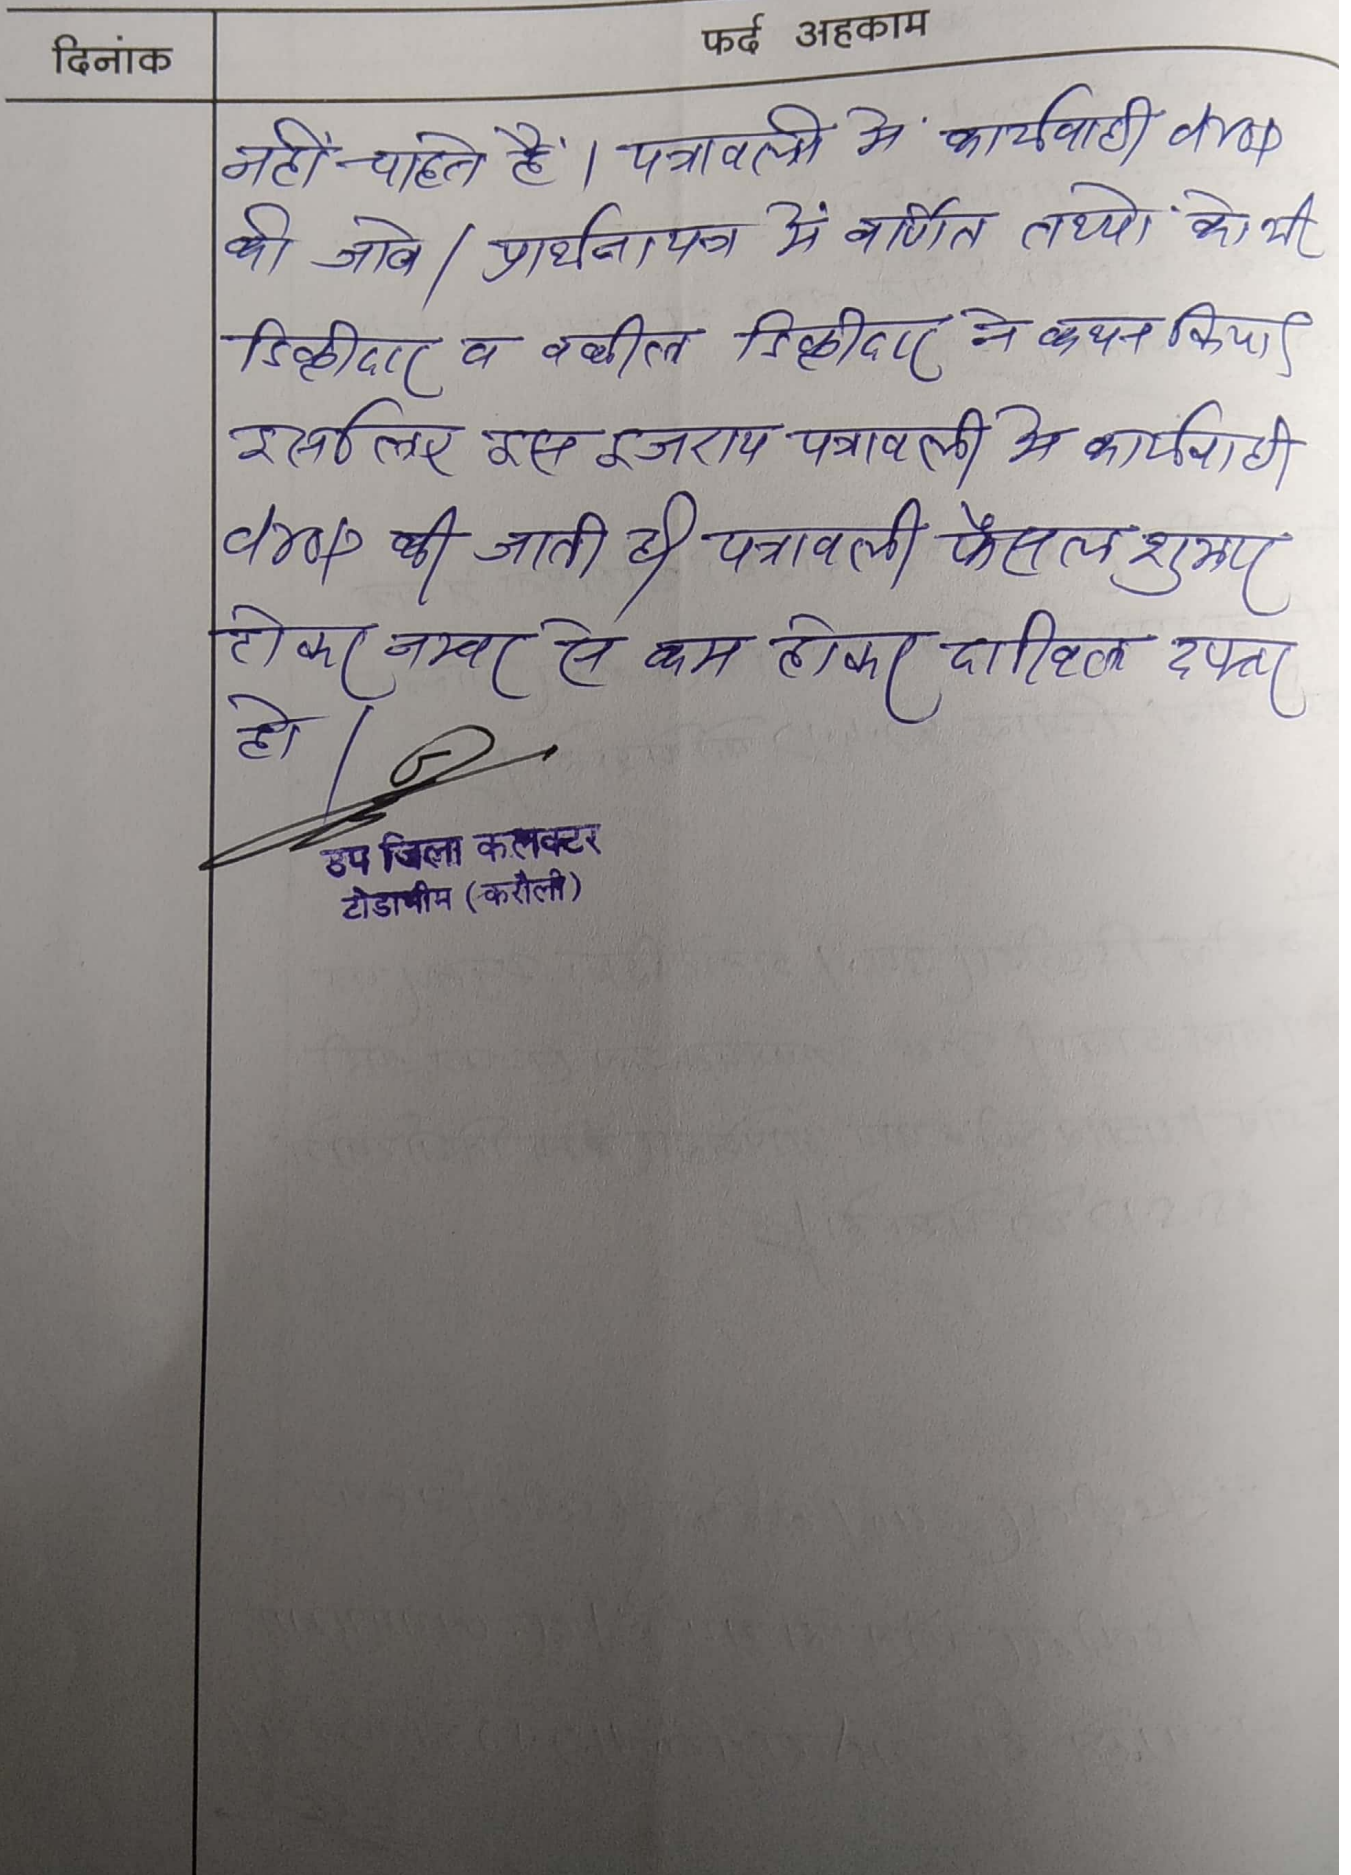 फर्द अहकाम
दिनांक
नहीं चाहते हैं। पत्रावली में कार्यवाही drop
की जावे। प्रार्थना पत्र में वर्णित तथ्यों को भी
डिक्रीदार व वकील डिक्रीदार ने कथन किया।
इसलिए इस इजराय पत्रावली में कार्यवाही
drop की जाती है। पत्रावली फैसल शुमार
होकर नम्बर से कम होकर दाखिल दफ्तर
हो।
उप जिला कलक्टर
टोडाभीम (करौली)